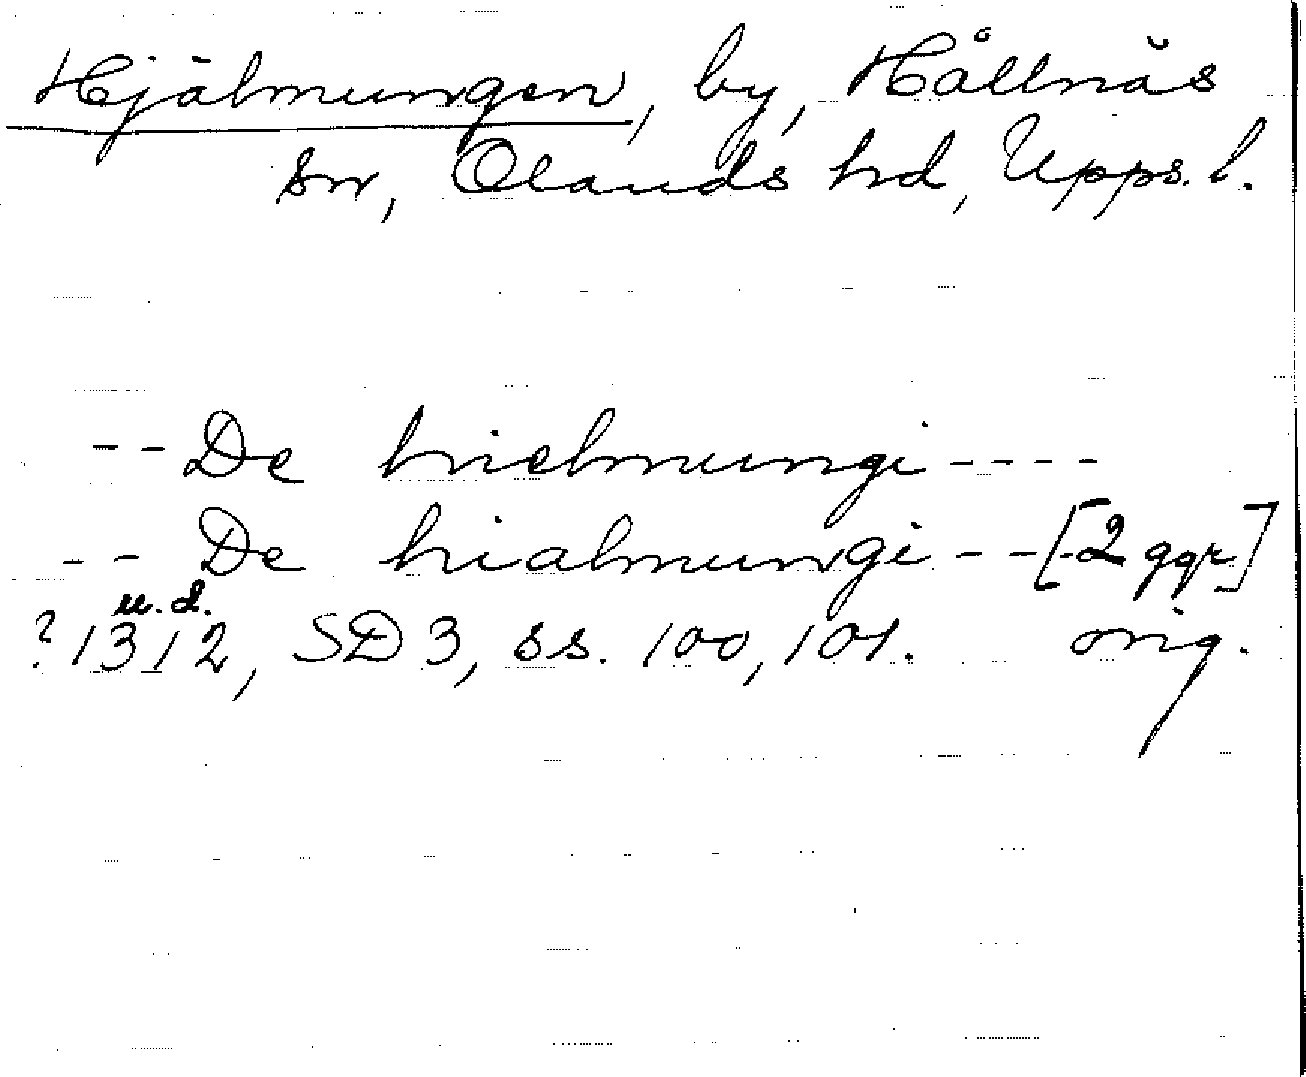 Hjälmungen, by, Hållnäs
sn, Olands hd, Upps. l.
- - De hielmungi - - - -
- - De hialmungi - - - [2 ggr]
u. d.
? 1312, SD 3, ss. 100, 101. orig.